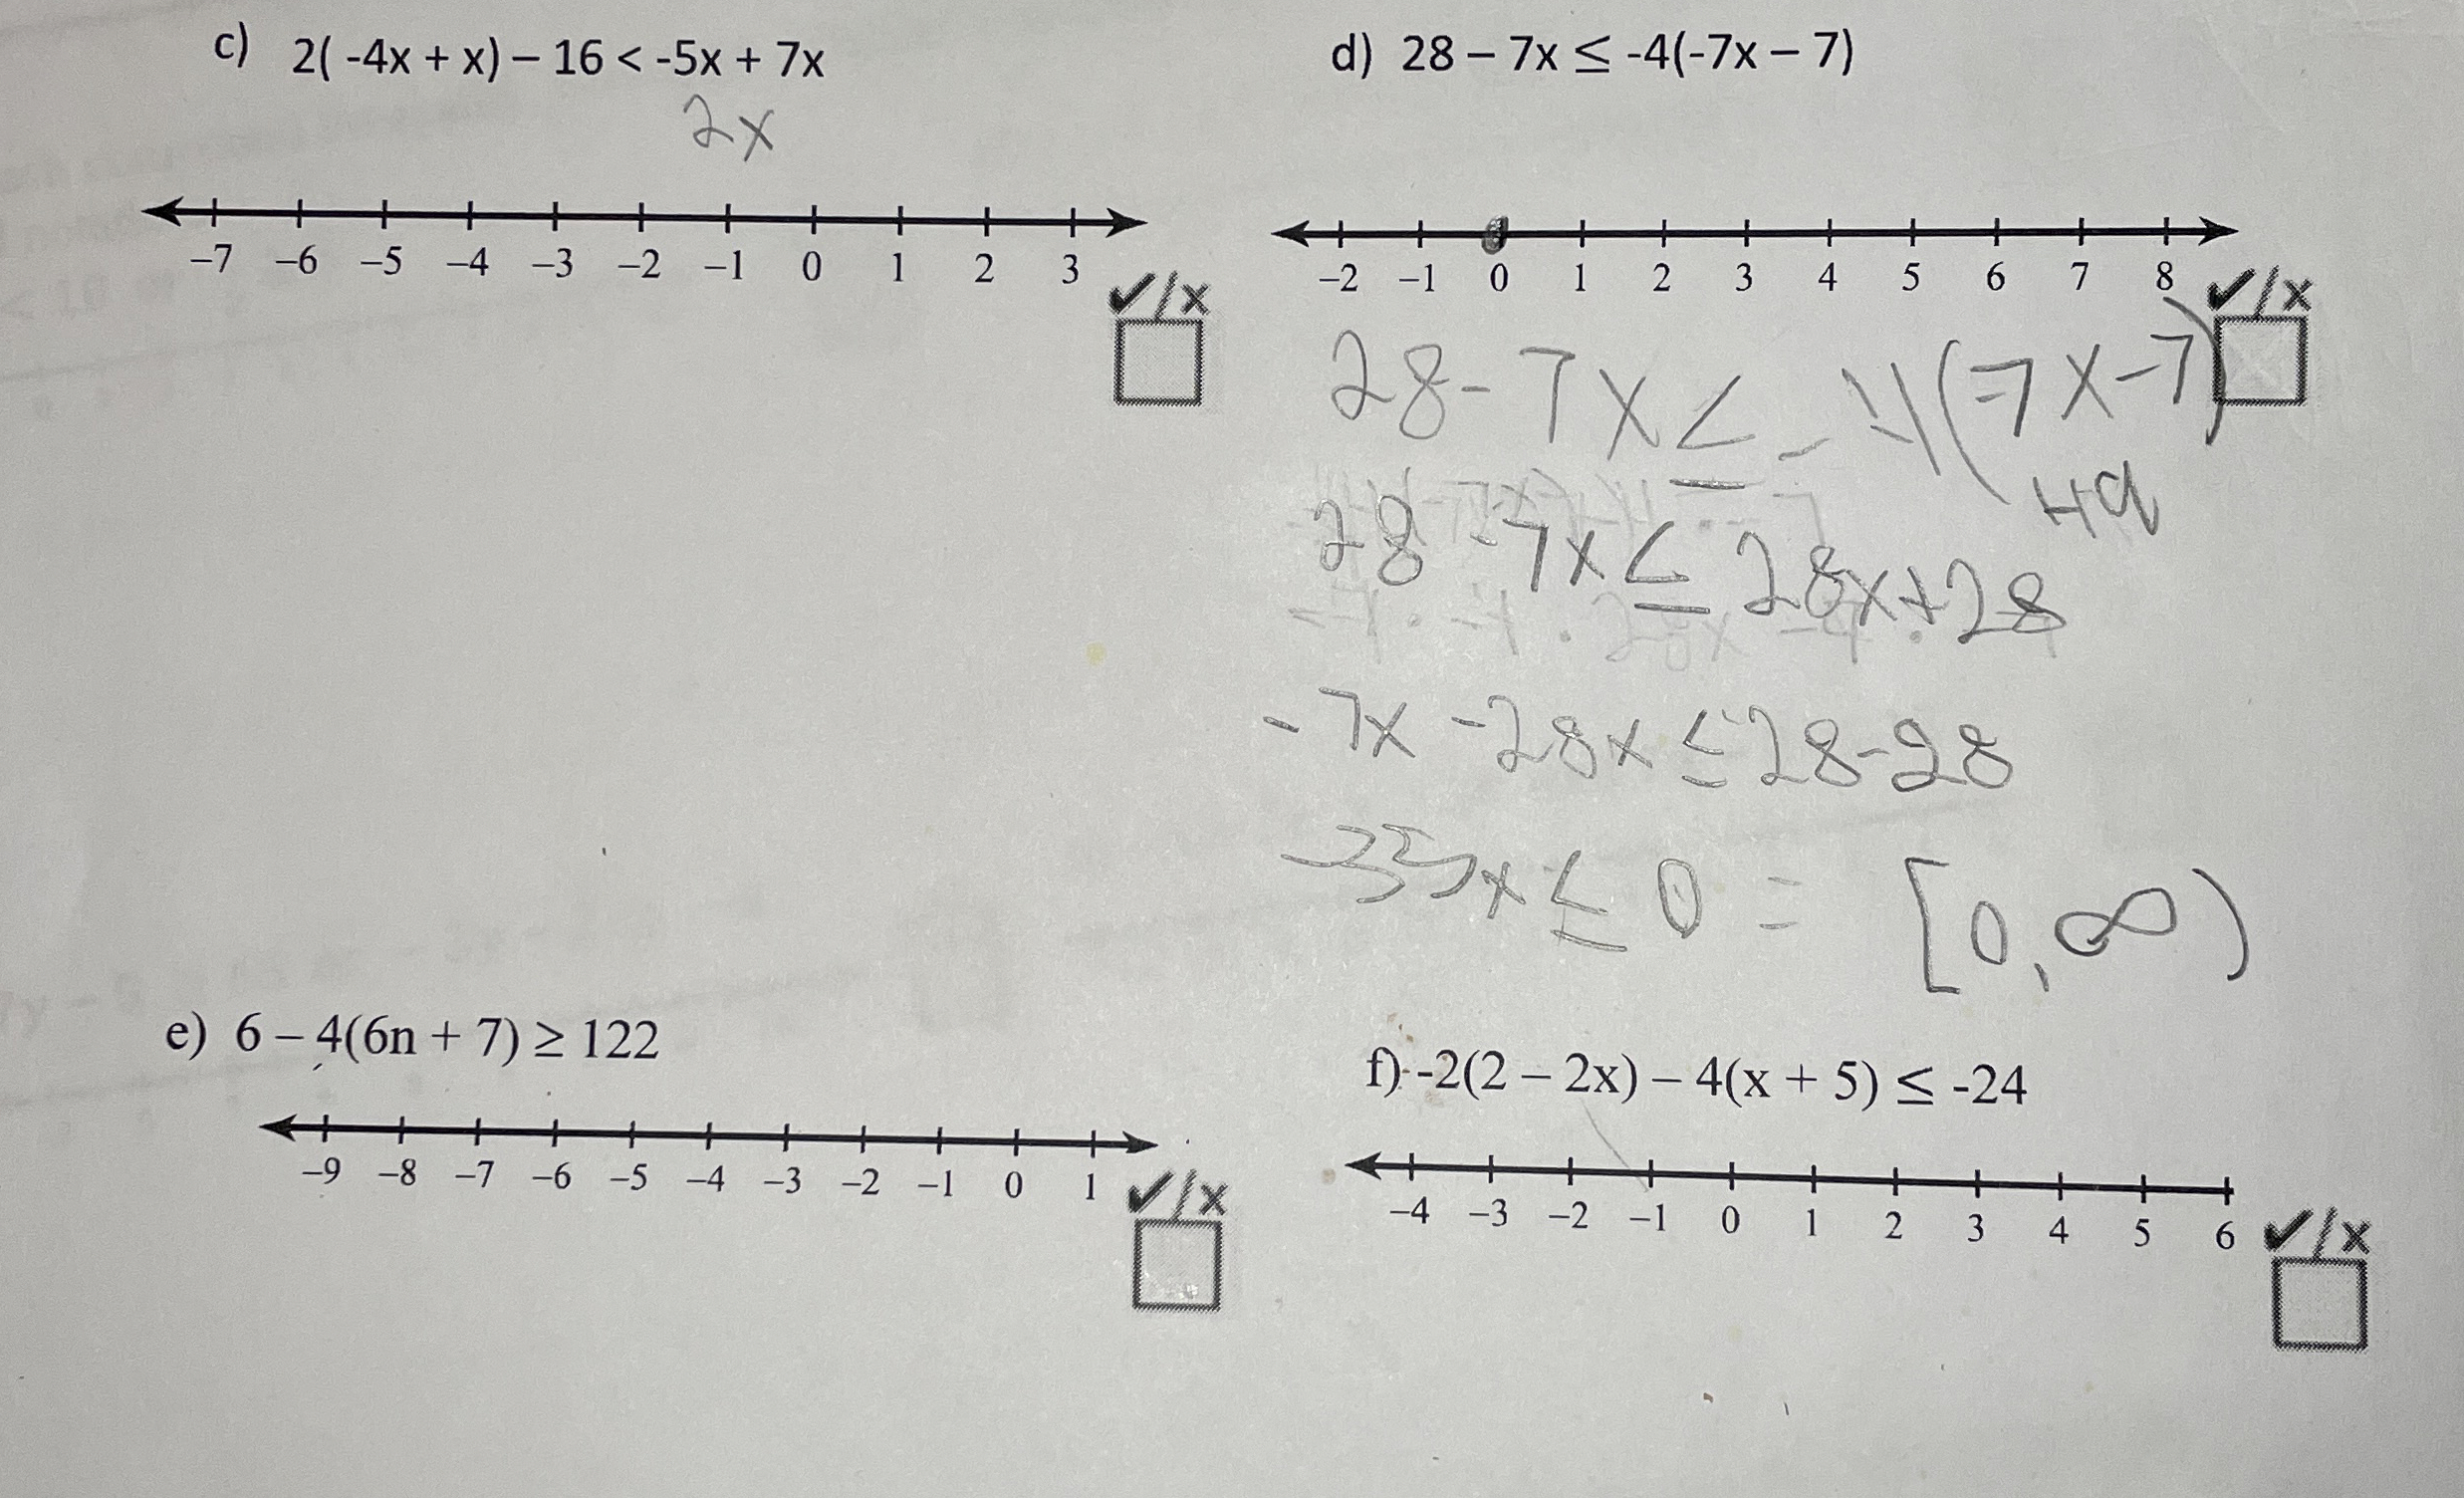 c) 2( -4x + x) – 16 < -5x + 7x
2x
–7 –6 –5 –4 –3 –2 –1 0 1 2 3
✔/x
d) 28 – 7x ≤ -4(-7x – 7)
–2 –1 0 1 2 3 4 5 6 7 8
✔/x
28-7x≤-4(-7x-7)
28-7x≤28x+28
-7x-28x≤28-28
-35x≤0=[0,∞)
e) 6 – 4(6n + 7) ≥ 122
–9 –8 –7 –6 –5 –4 –3 –2 –1 0 1
✔/x
f) -2(2 – 2x) – 4(x + 5) ≤ -24
–4 –3 –2 –1 0 1 2 3 4 5 6
✔/x